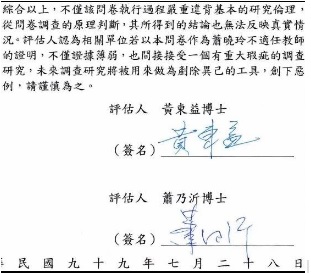 綜合以上，不僅該問卷執行過程嚴重違背基本的研究倫理，
從問卷調查的原理判斷，其所得到的結論也無法反映真實情
況。評估人認為相關單位若以本問卷作為蕭曉玲不適任教師
的證明，不僅證據薄弱，也間接接受一個有重大瑕疵的調查
研究，未來調查研究將被用來做為剷除異己的工具，創下惡
例，請謹慎為之。
評估人 黃東益博士
(簽名) 黃東益
評估人 蕭乃沂博士
(簽名) 蕭乃沂
民國九十九年七月二十八日